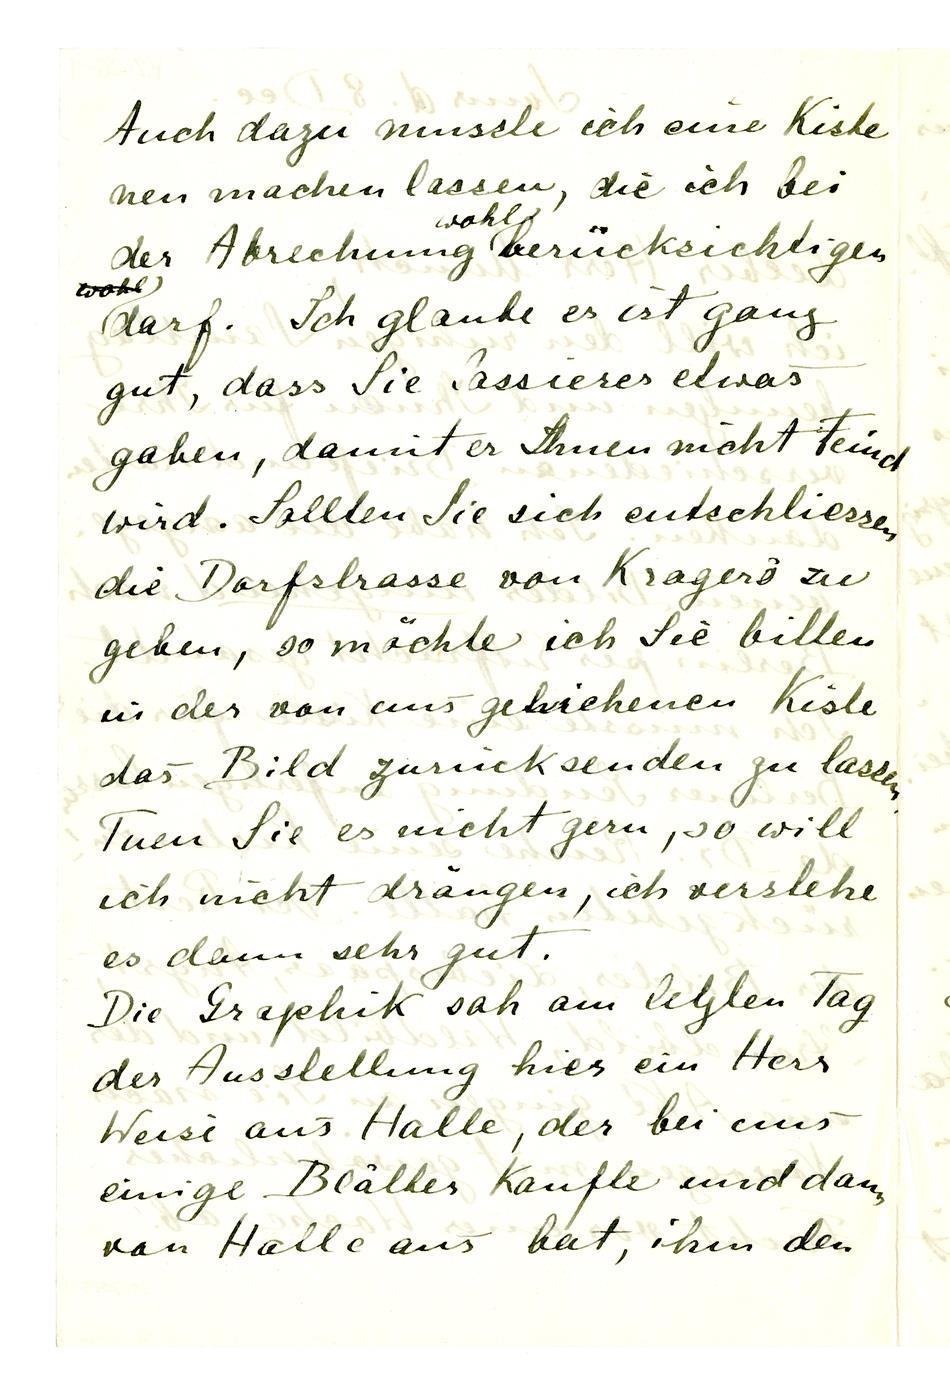 Auch dazu musste ich eine Kiste
neu machen lassen, die ich bei
der Abrechnung wohl berücksichtigen
wohl
darf. Ich glaube es ist ganz
gut, dass Sie Cassierer etwas
gaben, damit er Ihnen nicht Feind
wird. Sollten Sie sich entschliessen
die Dorfstrasse von Kragerö zu
geben, so möchte ich Sie bitten
in der von uns geliehenen Kiste
das Bild zurücksenden zu lassen,
Tuen Sie es nicht gern, so will
ich nicht drängen, ich verstehe
es dann sehr gut.
Die Graphik sah am letzten Tag
der Ausstellung hier ein Herr
Weise aus Halle, der bei uns
einige Blätter kaufte und dann
von Halle aus bat, ihm den